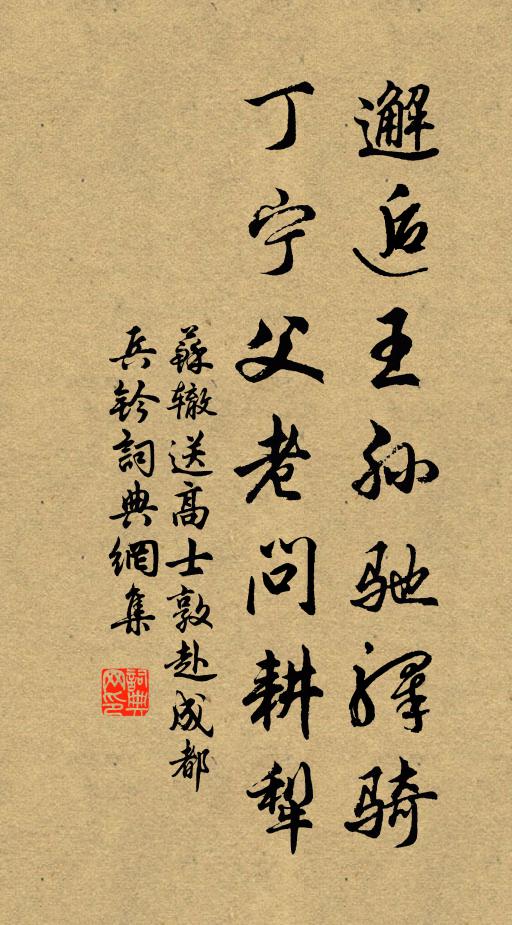 邂逅王孙驰驿骑
丁宁父老问耕犁
蘇辙送高士敦赴成都
兵鈐詞典網集
詞典网印